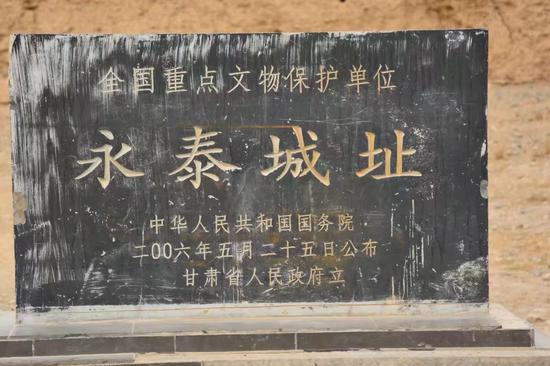 全国重点文物保护单位
永泰城址
中华人民共和国国务院
二00六年五月二十五日公布
甘肃省人民政府立